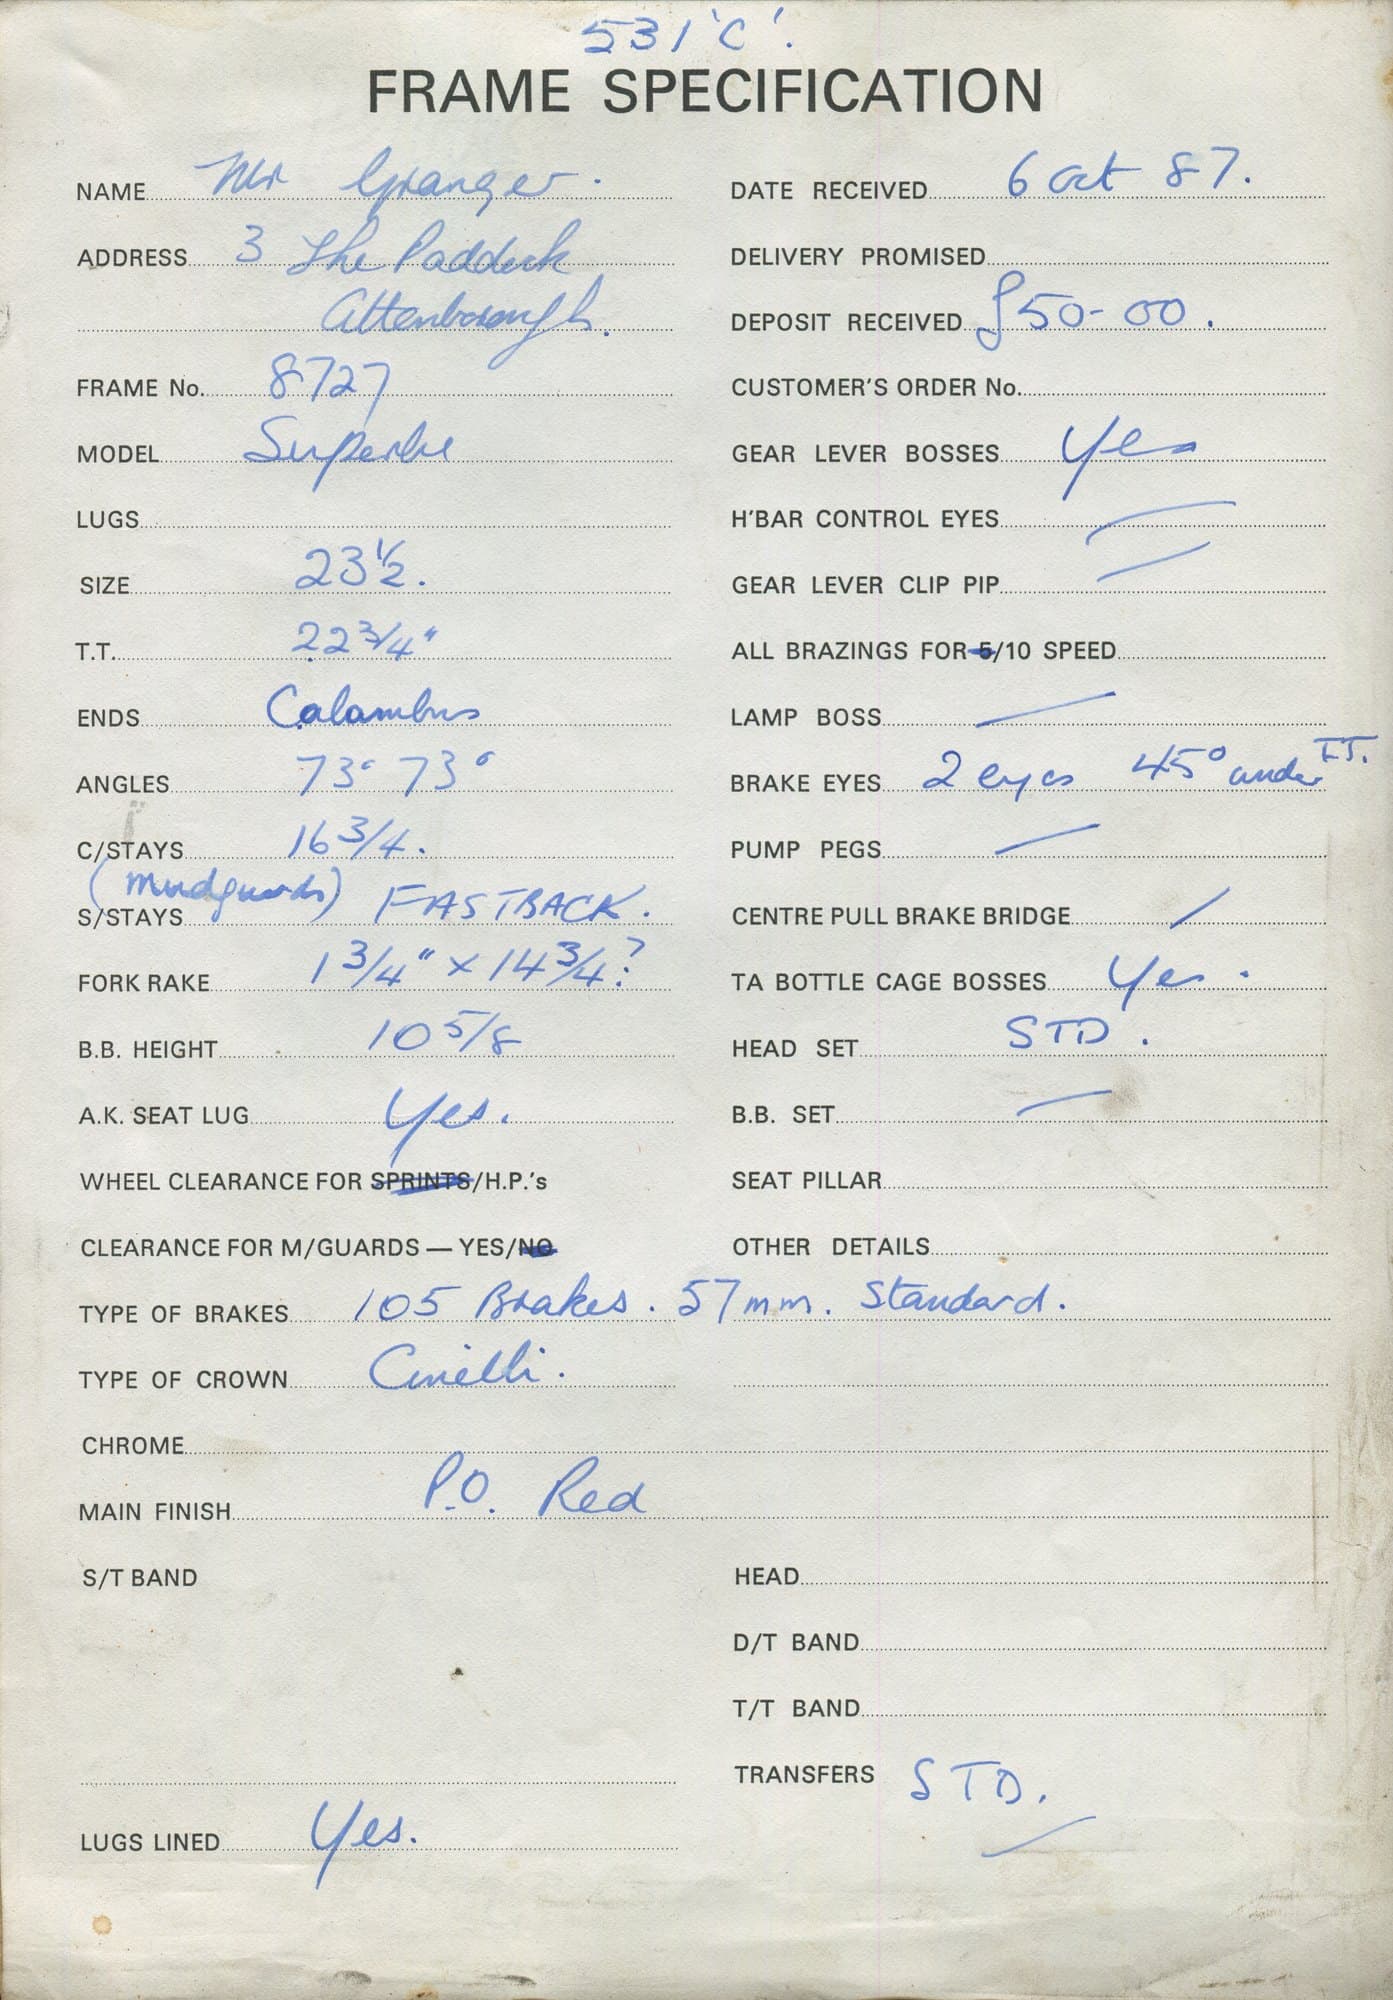 531 'C'.
FRAME SPECIFICATION
NAME Mr Granger.
ADDRESS 3 The Paddock
Attenborough.
FRAME No. 8727
MODEL Superbe
LUGS
SIZE 23 1/2.
T.T. 22 3/4"
ENDS Calambus
ANGLES 73° 73°
C/STAYS 16 3/4.
(mudguards)
S/STAYS FASTBACK.
FORK RAKE 1 3/4" x 14 3/4?
B.B. HEIGHT 10 5/8
A.K. SEAT LUG Yes.
WHEEL CLEARANCE FOR SPRINTS/H.P.'s
CLEARANCE FOR M/GUARDS — YES/NO
DATE RECEIVED 6 Oct 87.
DELIVERY PROMISED
DEPOSIT RECEIVED £50-00.
CUSTOMER'S ORDER No.
GEAR LEVER BOSSES Yes
H'BAR CONTROL EYES
GEAR LEVER CLIP PIP
ALL BRAZINGS FOR 5/10 SPEED
LAMP BOSS
BRAKE EYES 2 eyes 45° under T.T.
PUMP PEGS
CENTRE PULL BRAKE BRIDGE
TA BOTTLE CAGE BOSSES Yes.
HEAD SET STD.
B.B. SET
SEAT PILLAR
OTHER DETAILS
TYPE OF BRAKES 105 Brakes. 57mm. Standard.
TYPE OF CROWN Cinelli.
CHROME
MAIN FINISH P.O. Red
S/T BAND
LUGS LINED Yes.
HEAD
D/T BAND
T/T BAND
TRANSFERS STD.